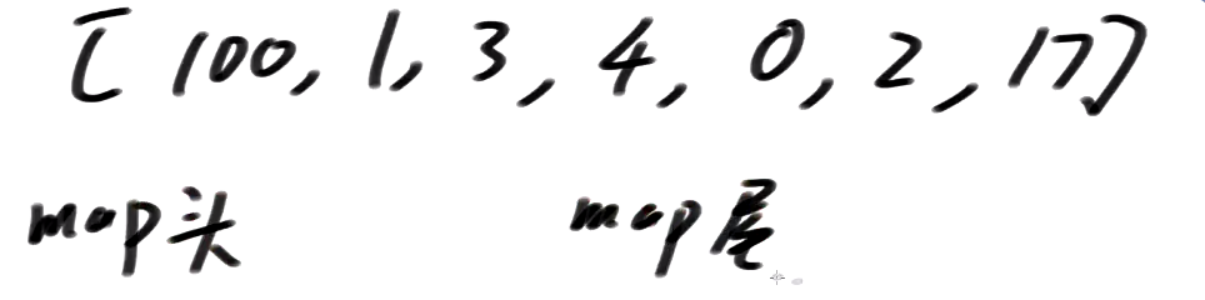 [100, 1, 3, 4, 0, 2, 17]
map头 map尾